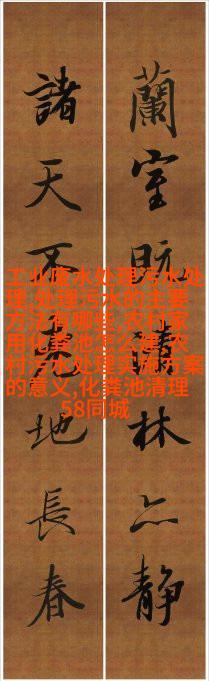 蘭室既林亦静
諸天不地長春
工业废水处理污水处
理,处理污水的主要
方法有哪些,农村家
用化粪池怎么建,农
村污水处理实施方案
的意义,化粪池清理
58同城